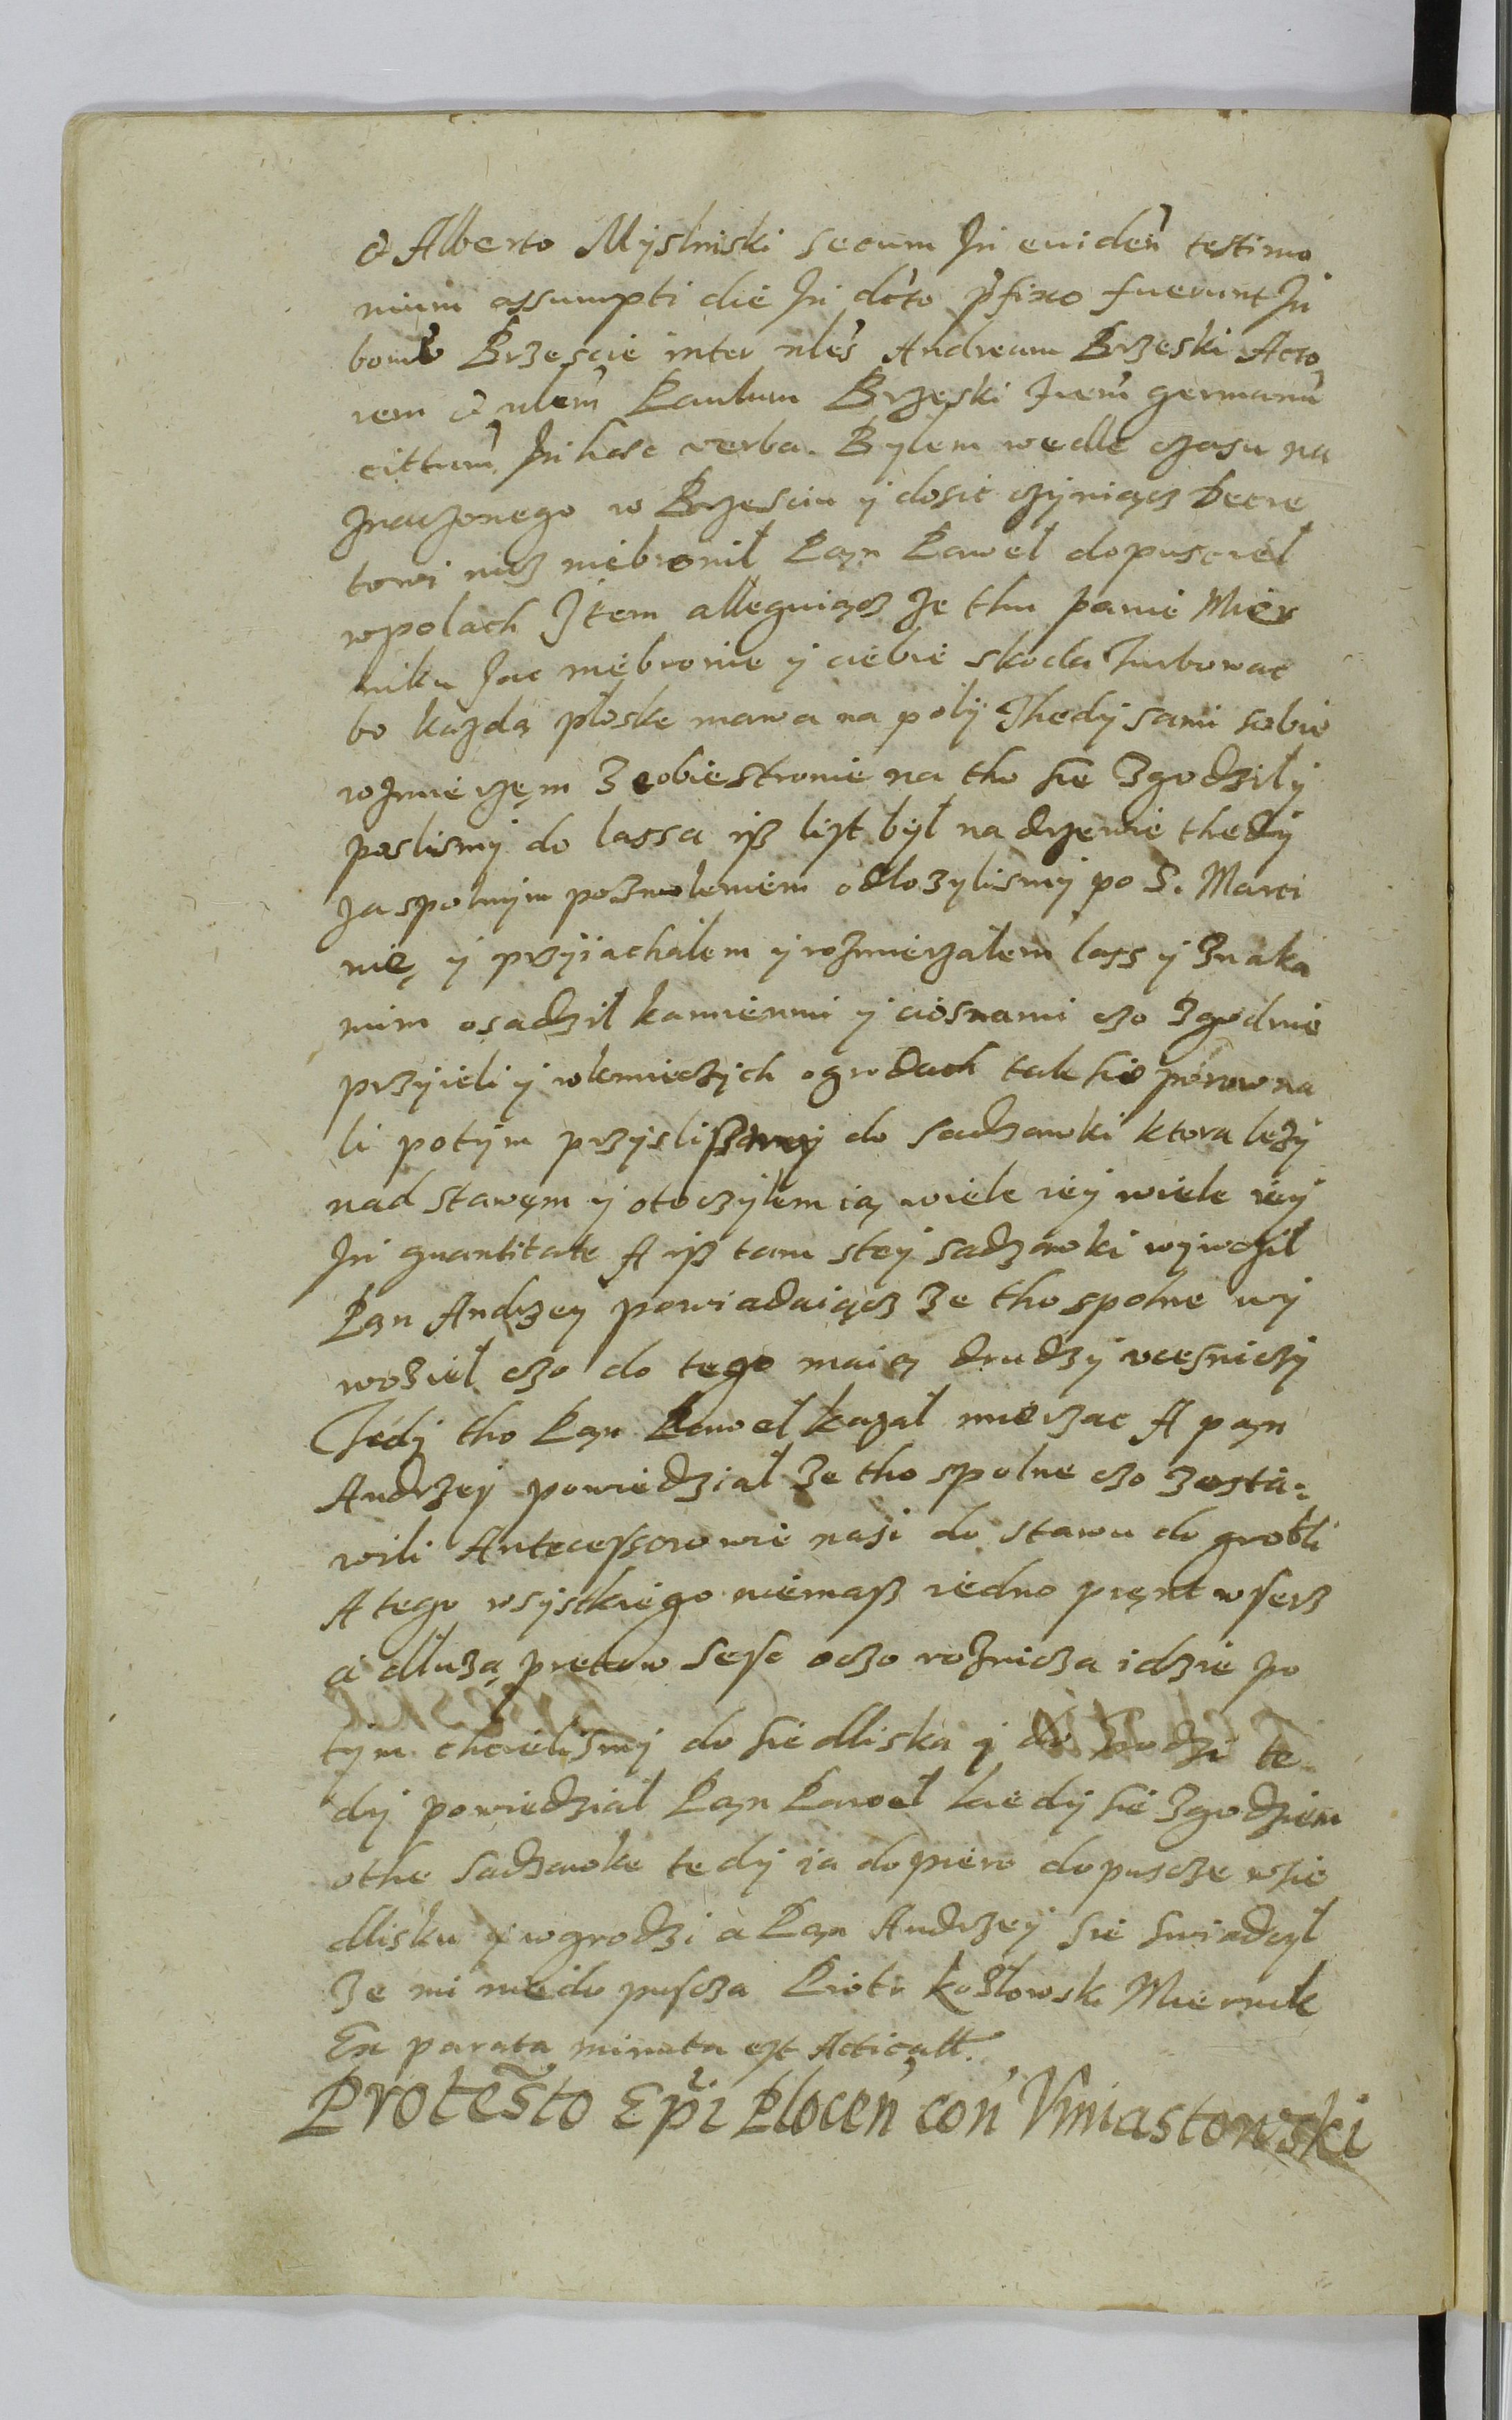 & Alberto Myslniski secum In euiden̄ testimo
nium assumpti die In dc̄to p̄fixo fuerunt In
bonis Brzescie inter nłes Andream Brzeski Acto
rem & nłem Paulum Brzeski frem̄ germanū
cittum̄ In haec verba. Bylem wedle czasu na
znaczonego w Brzesciu y dosic czyniącz Decre
towi nicz niebronil Pąn Pawel dopusciel
wpolach Item alleguiącz ze thu panie Mier
niku Jac niebronie y ciebie skoda turbowac
bo kazdą ploske mawa na poly Thedy sami sobie
rozmierzęm z obiestronie na tho sie zgodzily
poslismy do lassa iß list byl na drzewie thedy
za spolnym pozwoleniem odlozylismy po S. Marci
nię y przyiachalem y rozmierzalem lass y znaka
mim osadzil kamienmi y ciosnami czo zgodnie
przyieli y wkmieczych ogrodach tak sie porowna
li potym przyslismy do sadzawki ktora lezy
nad stawęm y otoczylem ią wiele iey wiele iey
In quantitate A iß tam stey sadzawki wywozil
Pąn Andrzey powiadaiącz ze tho spolne wy
woziel czo do tego maią drudzy ucesniczy
Tedy tho Pąn Pawel kazal mierzac A pąn
Andrzey powiedzial ze tho spolne czo zosta=
wili Antecessorowie nasi do stawu do grobli
A tego wsystkiego niemaß iedno pręnt wserz
a dluzą pretow sesc oczo roznicza idzie po
tym chcielismy do siedliska y do grodzi te
dy powiedzial Pąn Pawel kiedy sie zgodziem
othe sadzawke tedy ia dopiero dopuscze wsie
dlisku y wgrodzi a Pąn Andrzey sie swiadczyl
ze mi niedopuscza Piotr Kozlowski Miernik
Ex parata minuta est Acticatt.
Protesto Ep̄i Plocen̄ con̄ Vniastowski